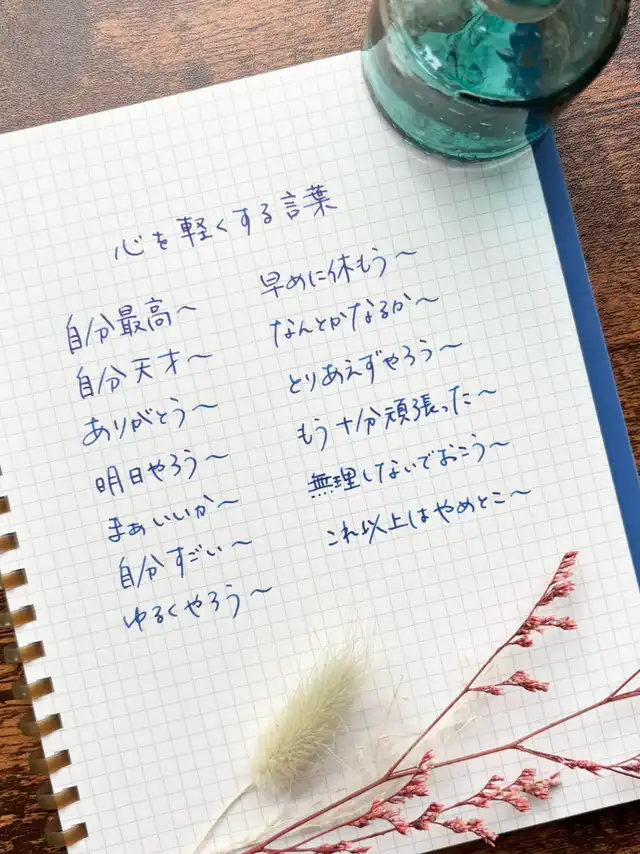 心を軽くする言葉
自分最高〜
自分天才〜
ありがとう〜
明日やろう〜
まぁいいか〜
自分すごい〜
ゆるくやろう〜
早めに休もう〜
なんとかなるか〜
とりあえずやろう〜
もう十分頑張った〜
無理しないでおこう〜
これ以上はやめとこ〜